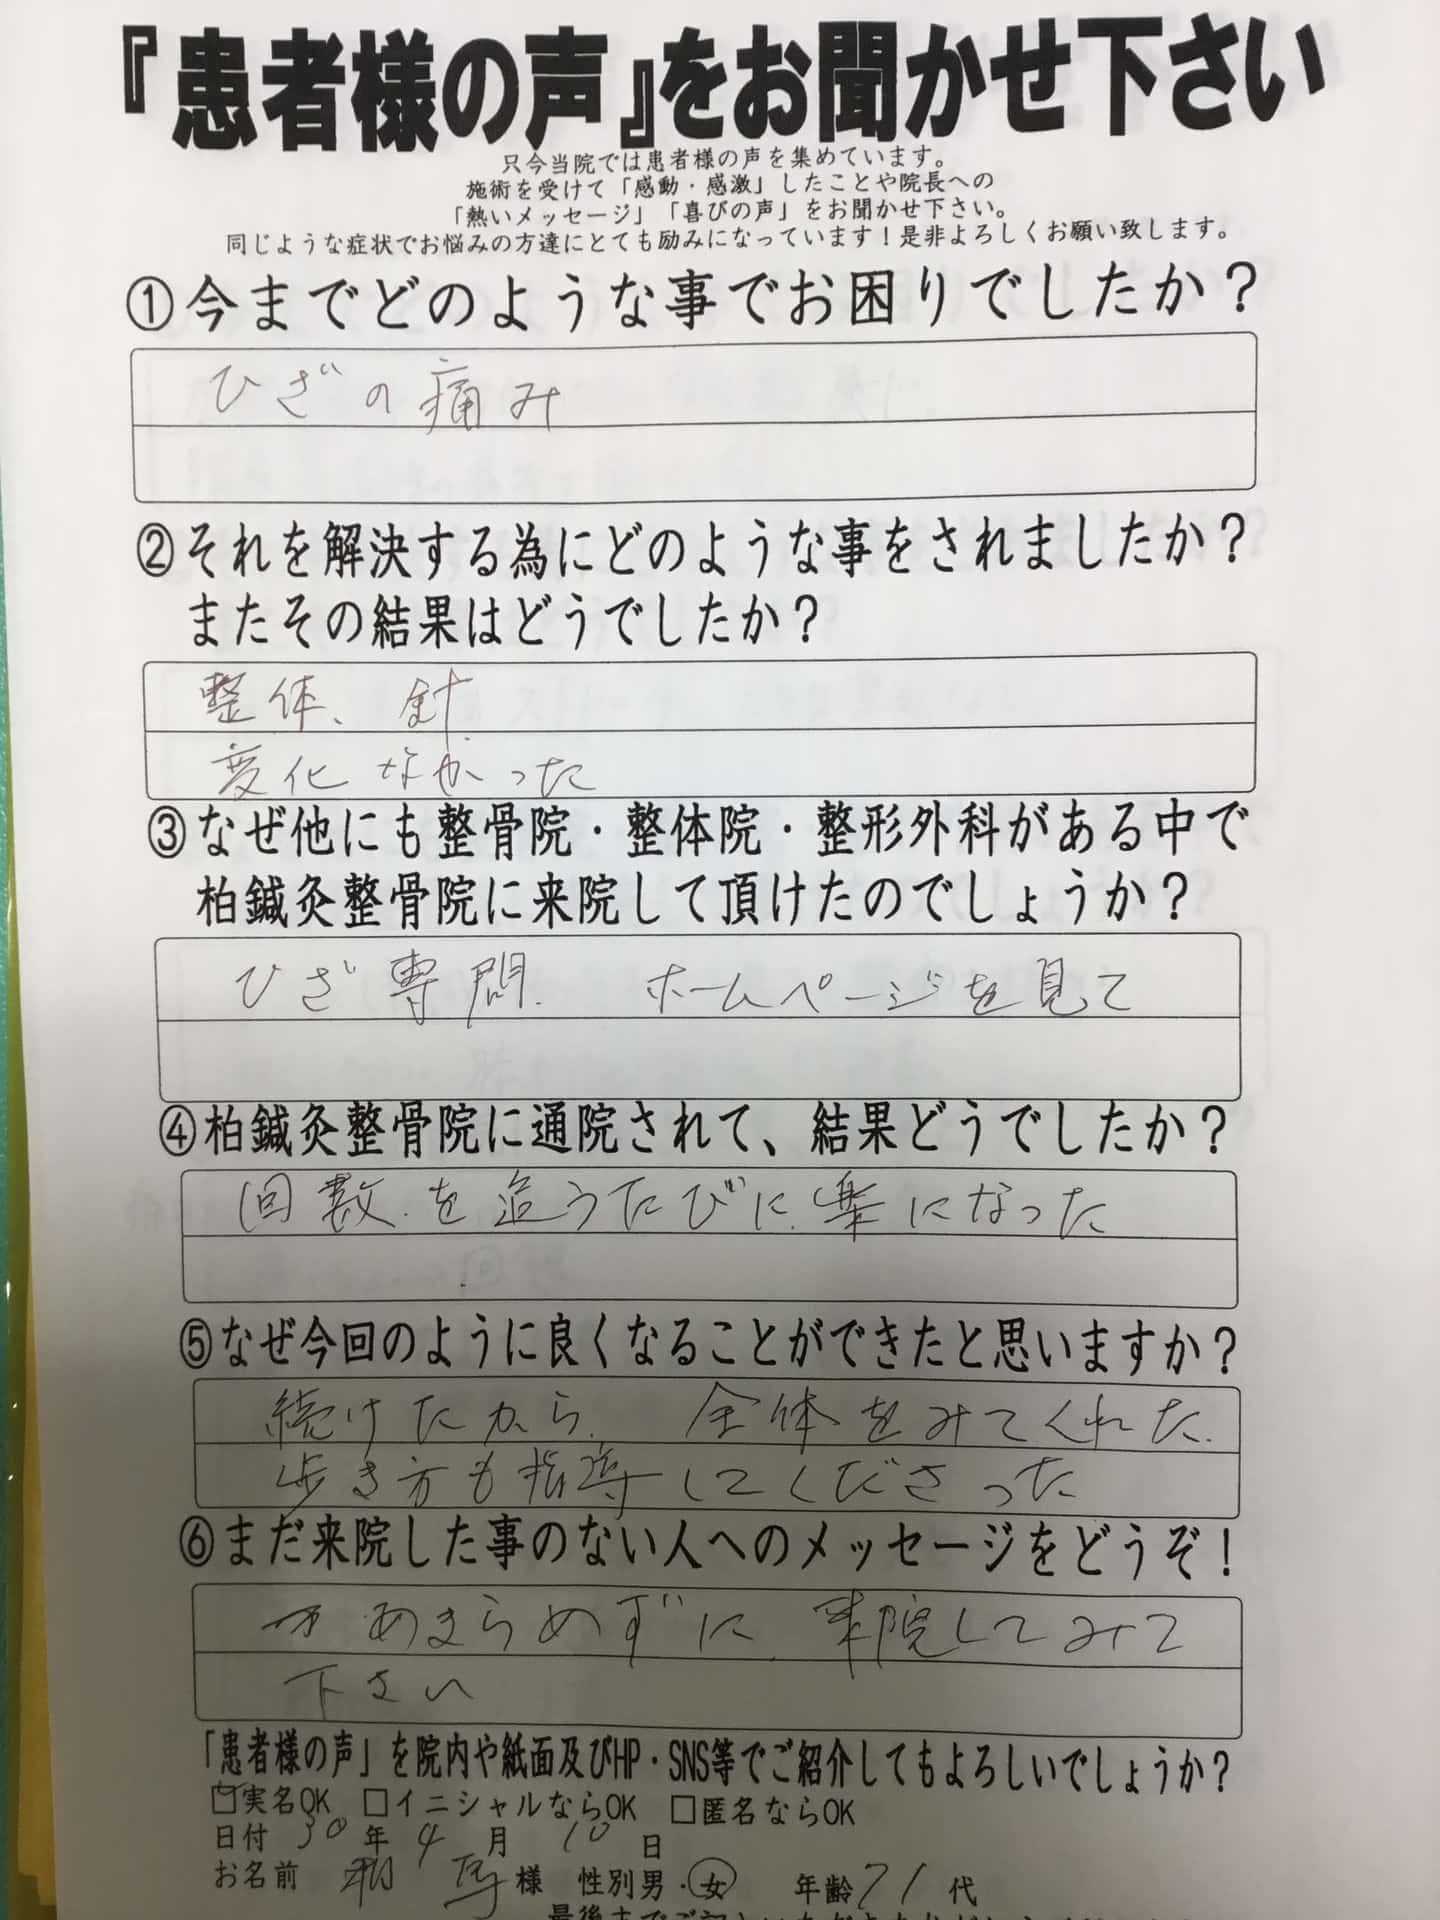 『患者様の声』をお聞かせ下さい
只今当院では患者様の声を集めています。
施術を受けて「感動・感激」したことや院長への
「熱いメッセージ」「喜びの声」をお聞かせ下さい。
同じような症状でお悩みの方達にとても励みになっています！是非よろしくお願い致します。
①今までどのような事でお困りでしたか？
ひざの痛み
②それを解決する為にどのような事をされましたか？
またその結果はどうでしたか？
整体、針
変化なかった
③なぜ他にも整骨院・整体院・整形外科がある中で
柏鍼灸整骨院に来院して頂けたのでしょうか？
ひざ専問. ホームページを見て
④柏鍼灸整骨院に通院されて、結果どうでしたか？
回数を追うたびに楽になった
⑤なぜ今回のように良くなることができたと思いますか？
続けたから. 全体をみてくれた.
歩き方も指導してくださった
⑥まだ来院した事のない人へのメッセージをどうぞ！
あきらめずに 来院してみて
下さい
「患者様の声」を院内や紙面及びHP・SNS等でご紹介してもよろしいでしょうか？
☑実名OK □イニシャルならOK □匿名ならOK
日付 30年 4月 10日
お名前 相馬様 性別男・女 年齢71代